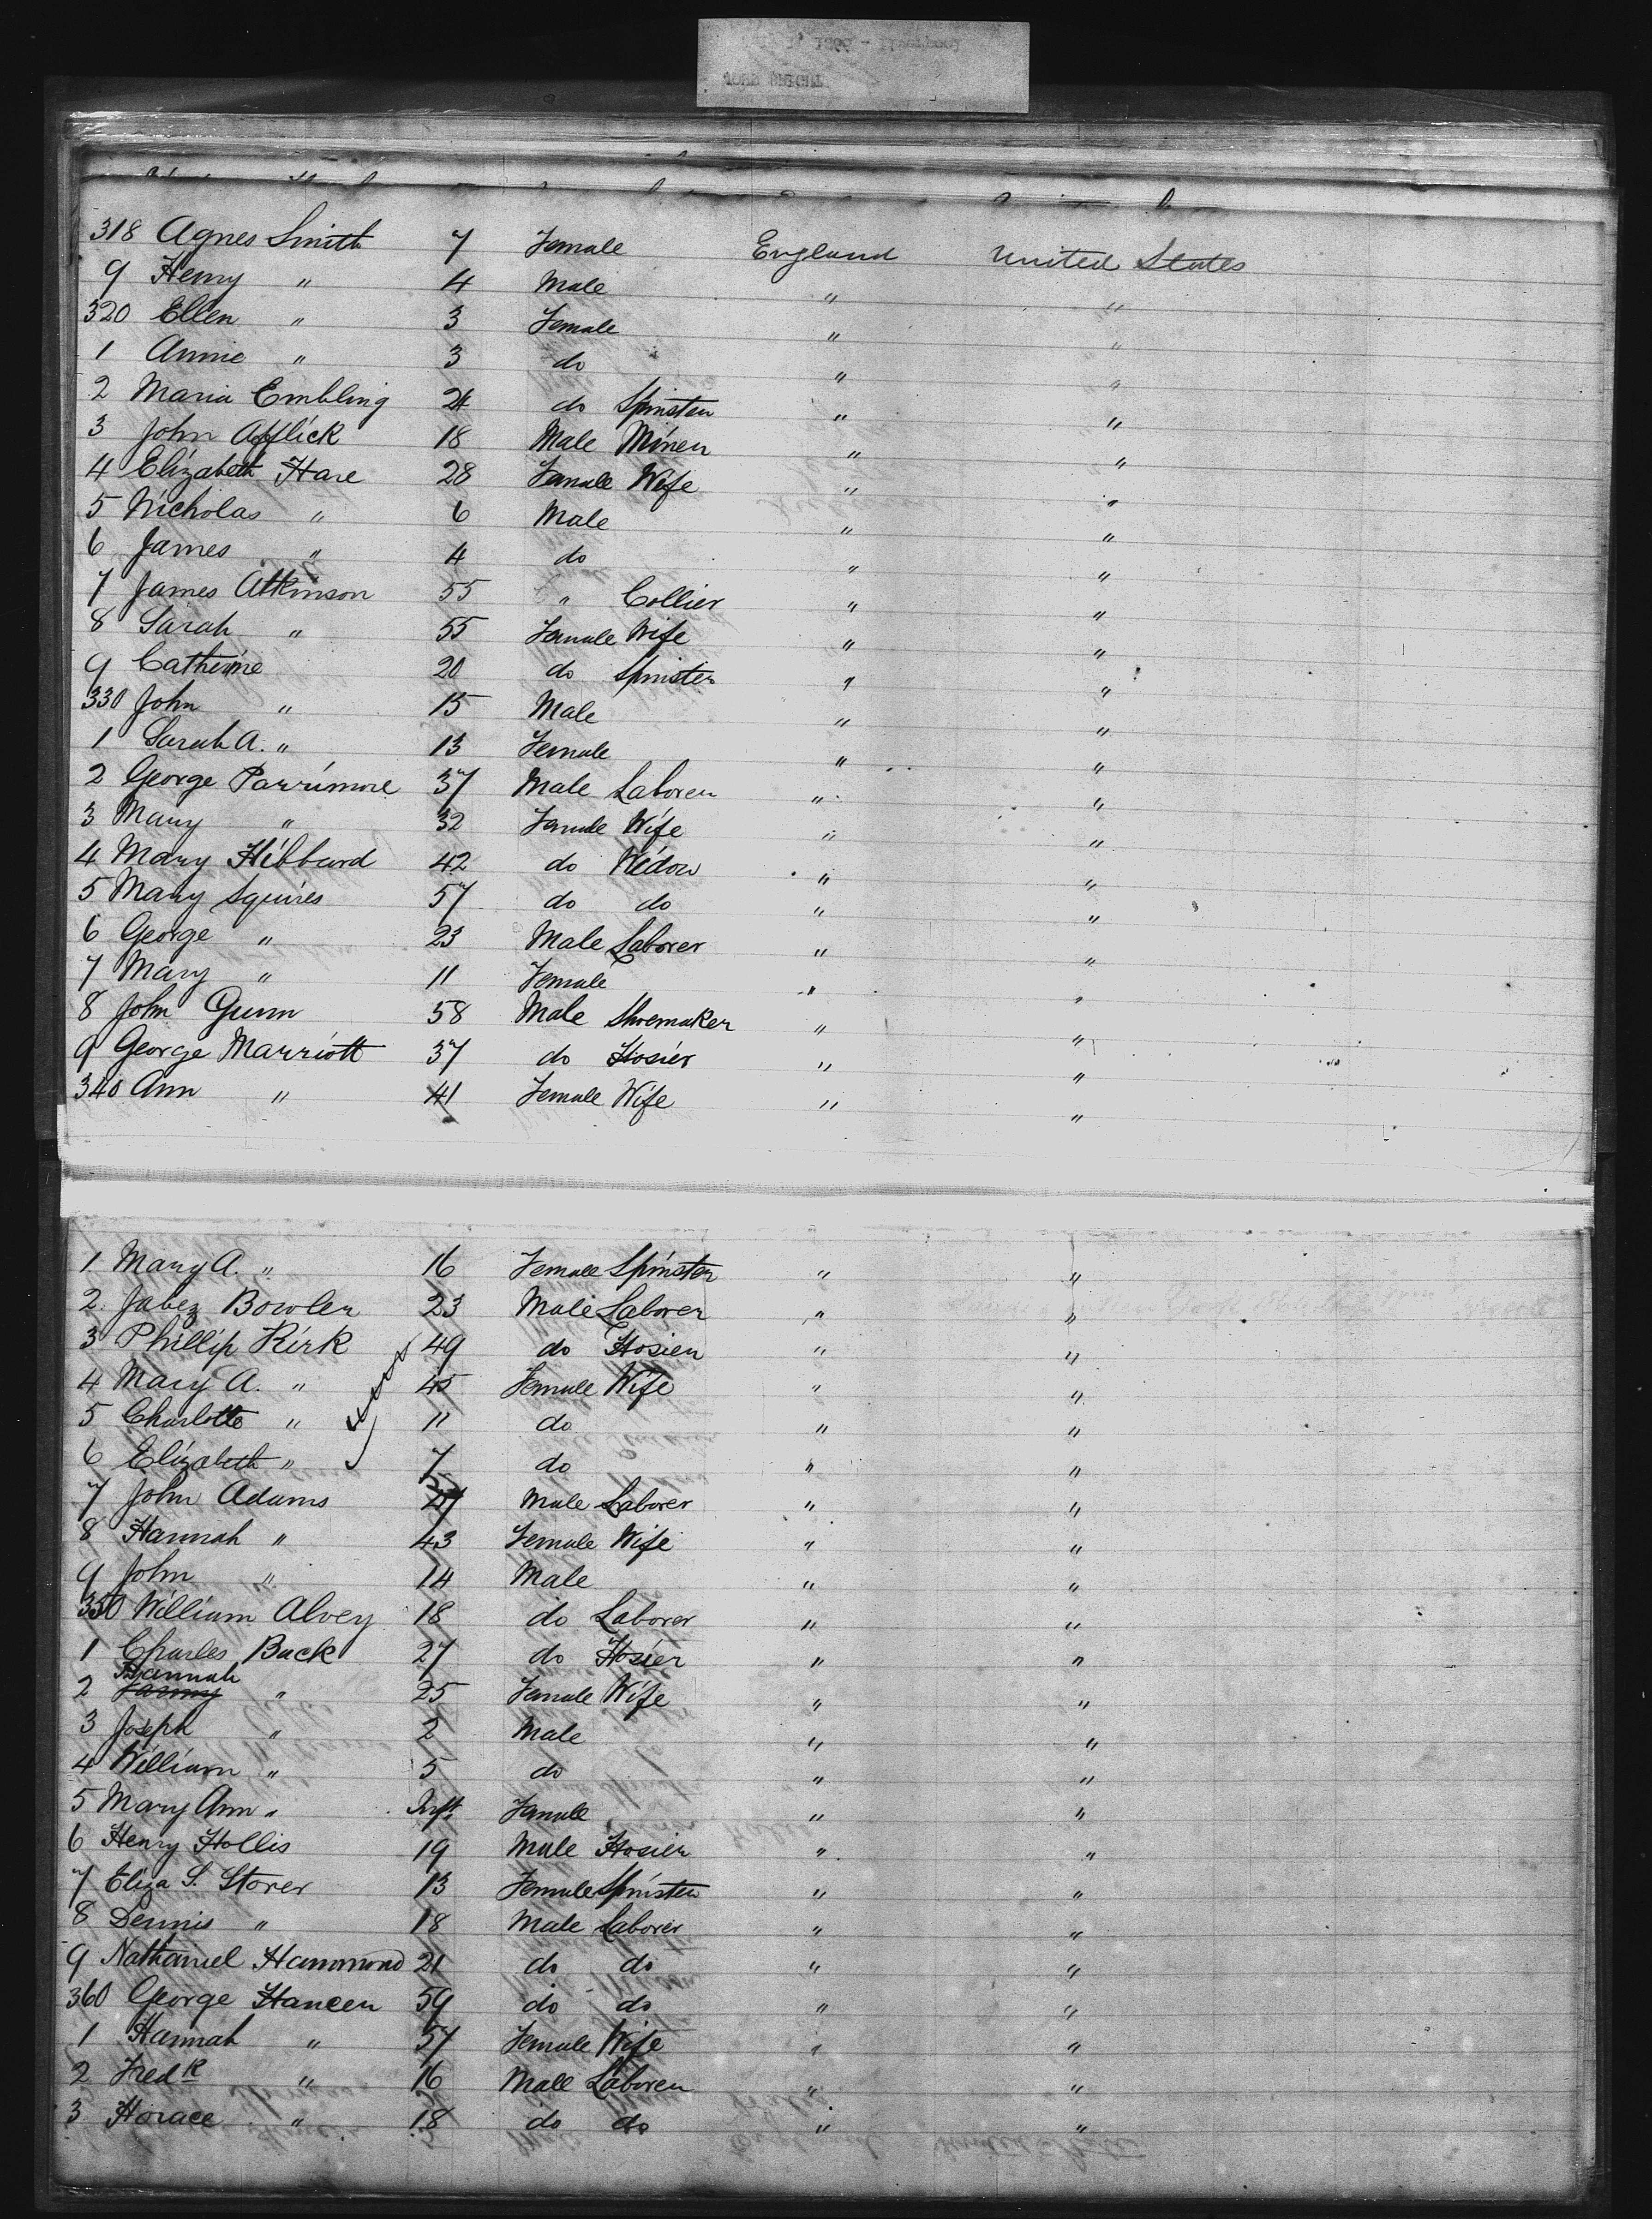 318 Agnes Smith 7 Female England United States
9 Henry " 4 Male " "
320 Ellen " 3 Female " "
1 Annie " 3 do " "
2 Maria Embling 24 do Spinster " "
3 John Afflick 18 Male Miner " "
4 Elizabeth Hare 28 Female Wife " "
5 Nicholas " 6 Male " "
6 James " 4 do " "
7 James Atkinson 55 " Collier " "
8 Sarah " 55 Female Wife " "
9 Catherine 20 do Spinster " "
330 John " 15 Male " "
1 Sarah A. " 13 Female " "
2 George Parrimore 37 Male Laborer " "
3 Mary " 32 Female Wife " "
4 Mary Hibburd 42 do Widow " "
5 Mary Squires 57 do do " "
6 George " 23 Male Laborer " "
7 Mary " 11 Female " "
8 John Gunn 58 Male Shoemaker " "
9 George Marriott 37 do Hosier " "
340 Ann " 41 Female Wife " "
1 Mary A. " 16 Female Spinster " "
2 Jabez Bowler 23 Male Laborer " "
3 Phillip Kirk 49 do Hosier " "
4 Mary A. " 45 Female Wife " "
5 Charlotte " 11 do " "
6 Elizabeth " 7 do " "
7 John Adams Male Laborer " "
8 Hannah " 43 Female Wife " "
9 John " 14 Male " "
350 William Alvey 18 do Laborer " "
1 Charles Buck 27 do Hosier " "
Hannah
2 Fanny " 25 Female Wife " "
3 Joseph " 2 Male " "
4 William " 5 do " "
5 Mary Ann " Inft Female " "
6 Henry Hollis 19 Male Hosier " "
7 Eliza S. Storer 13 Female Spinster " "
8 Dennis " 18 Male Laborer " "
9 Nathaniel Hammond 21 do do " "
360 George Hancen 59 do do " "
1 Hannah " 57 Female Wife " "
2 Fredk " 16 Male Laborer " "
3 Horace " 18 do do " "